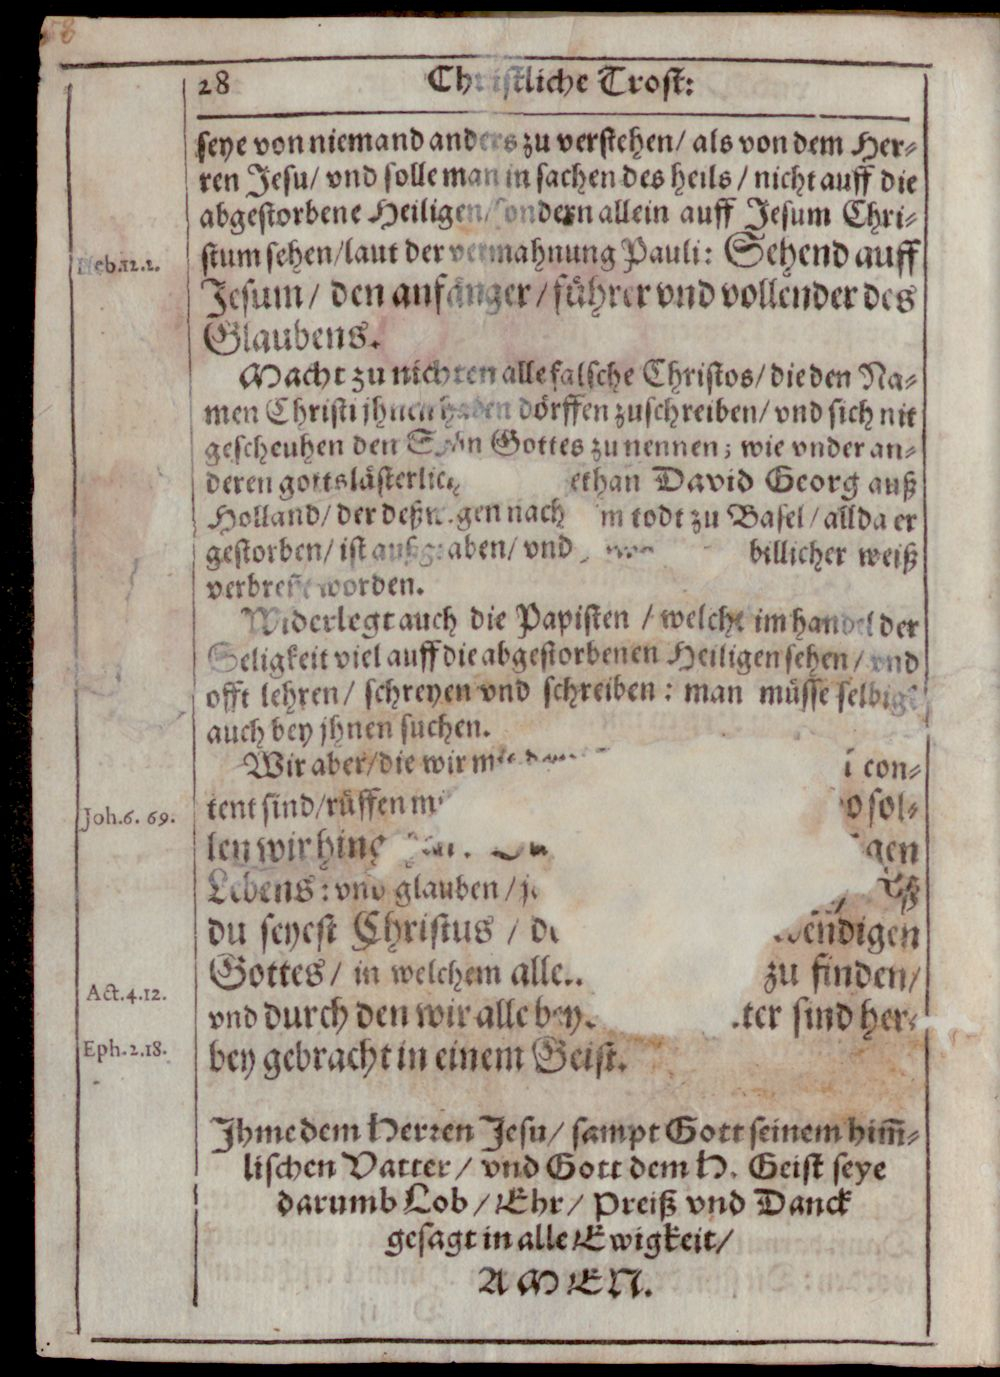 58
28 Christliche Trost:
seye von niemand anders zu verstehen/ als von dem Her-
ren Jesu/ vnd solle man in sachen des heils/ nicht auff die
abgestorbene Heiligen/ sondern allein auff Jesum Chri-
Heb.12.2.
stum sehen/laut der vermahnung Pauli: Sehend auff
Jesum/ den anfänger/ führer vnd vollender des
Glaubens.
Macht zu nichten alle falsche Christos/ die den Na-
men Christi jhnen haben dörffen zuschreiben/ vnd sich nit
gescheuhen den Sohn Gottes zu nennen; wie vnder an-
deren gottslästerlich ethan David Georg auß
Holland/ der deßwegen nach m todt zu Basel/ allda er
gestorben/ ist außgraben/ vnd billicher weiß
verbrent worden.
Widerlegt auch die Papisten/ welche im handel der
Seligkeit viel auff die abgestorbenen Heiligen sehen/ vnd
offt lehren/ schreyen vnd schreiben: man müsse selbige
auch bey jhnen suchen.
Wir aber/die wir con-
Joh.6. 69.
tent sind/rüffen sol-
len wir hing gen
Lebens: vnd glauben/
du seyest Christus / wendigen
Gottes/ in welchem zu finden/
Act.4.12.
vnd durch den wir alle ter sind her-
Eph.2.18.
bey gebracht in einem Geist.
Ihme dem Herren Jesu/ sampt Gott seinem him̄-
lischen Vatter/ vnd Gott dem H. Geist seye
darumb Lob/ Ehr/ Preiß vnd Danck
gesagt in alle Ewigkeit/
AMEN.